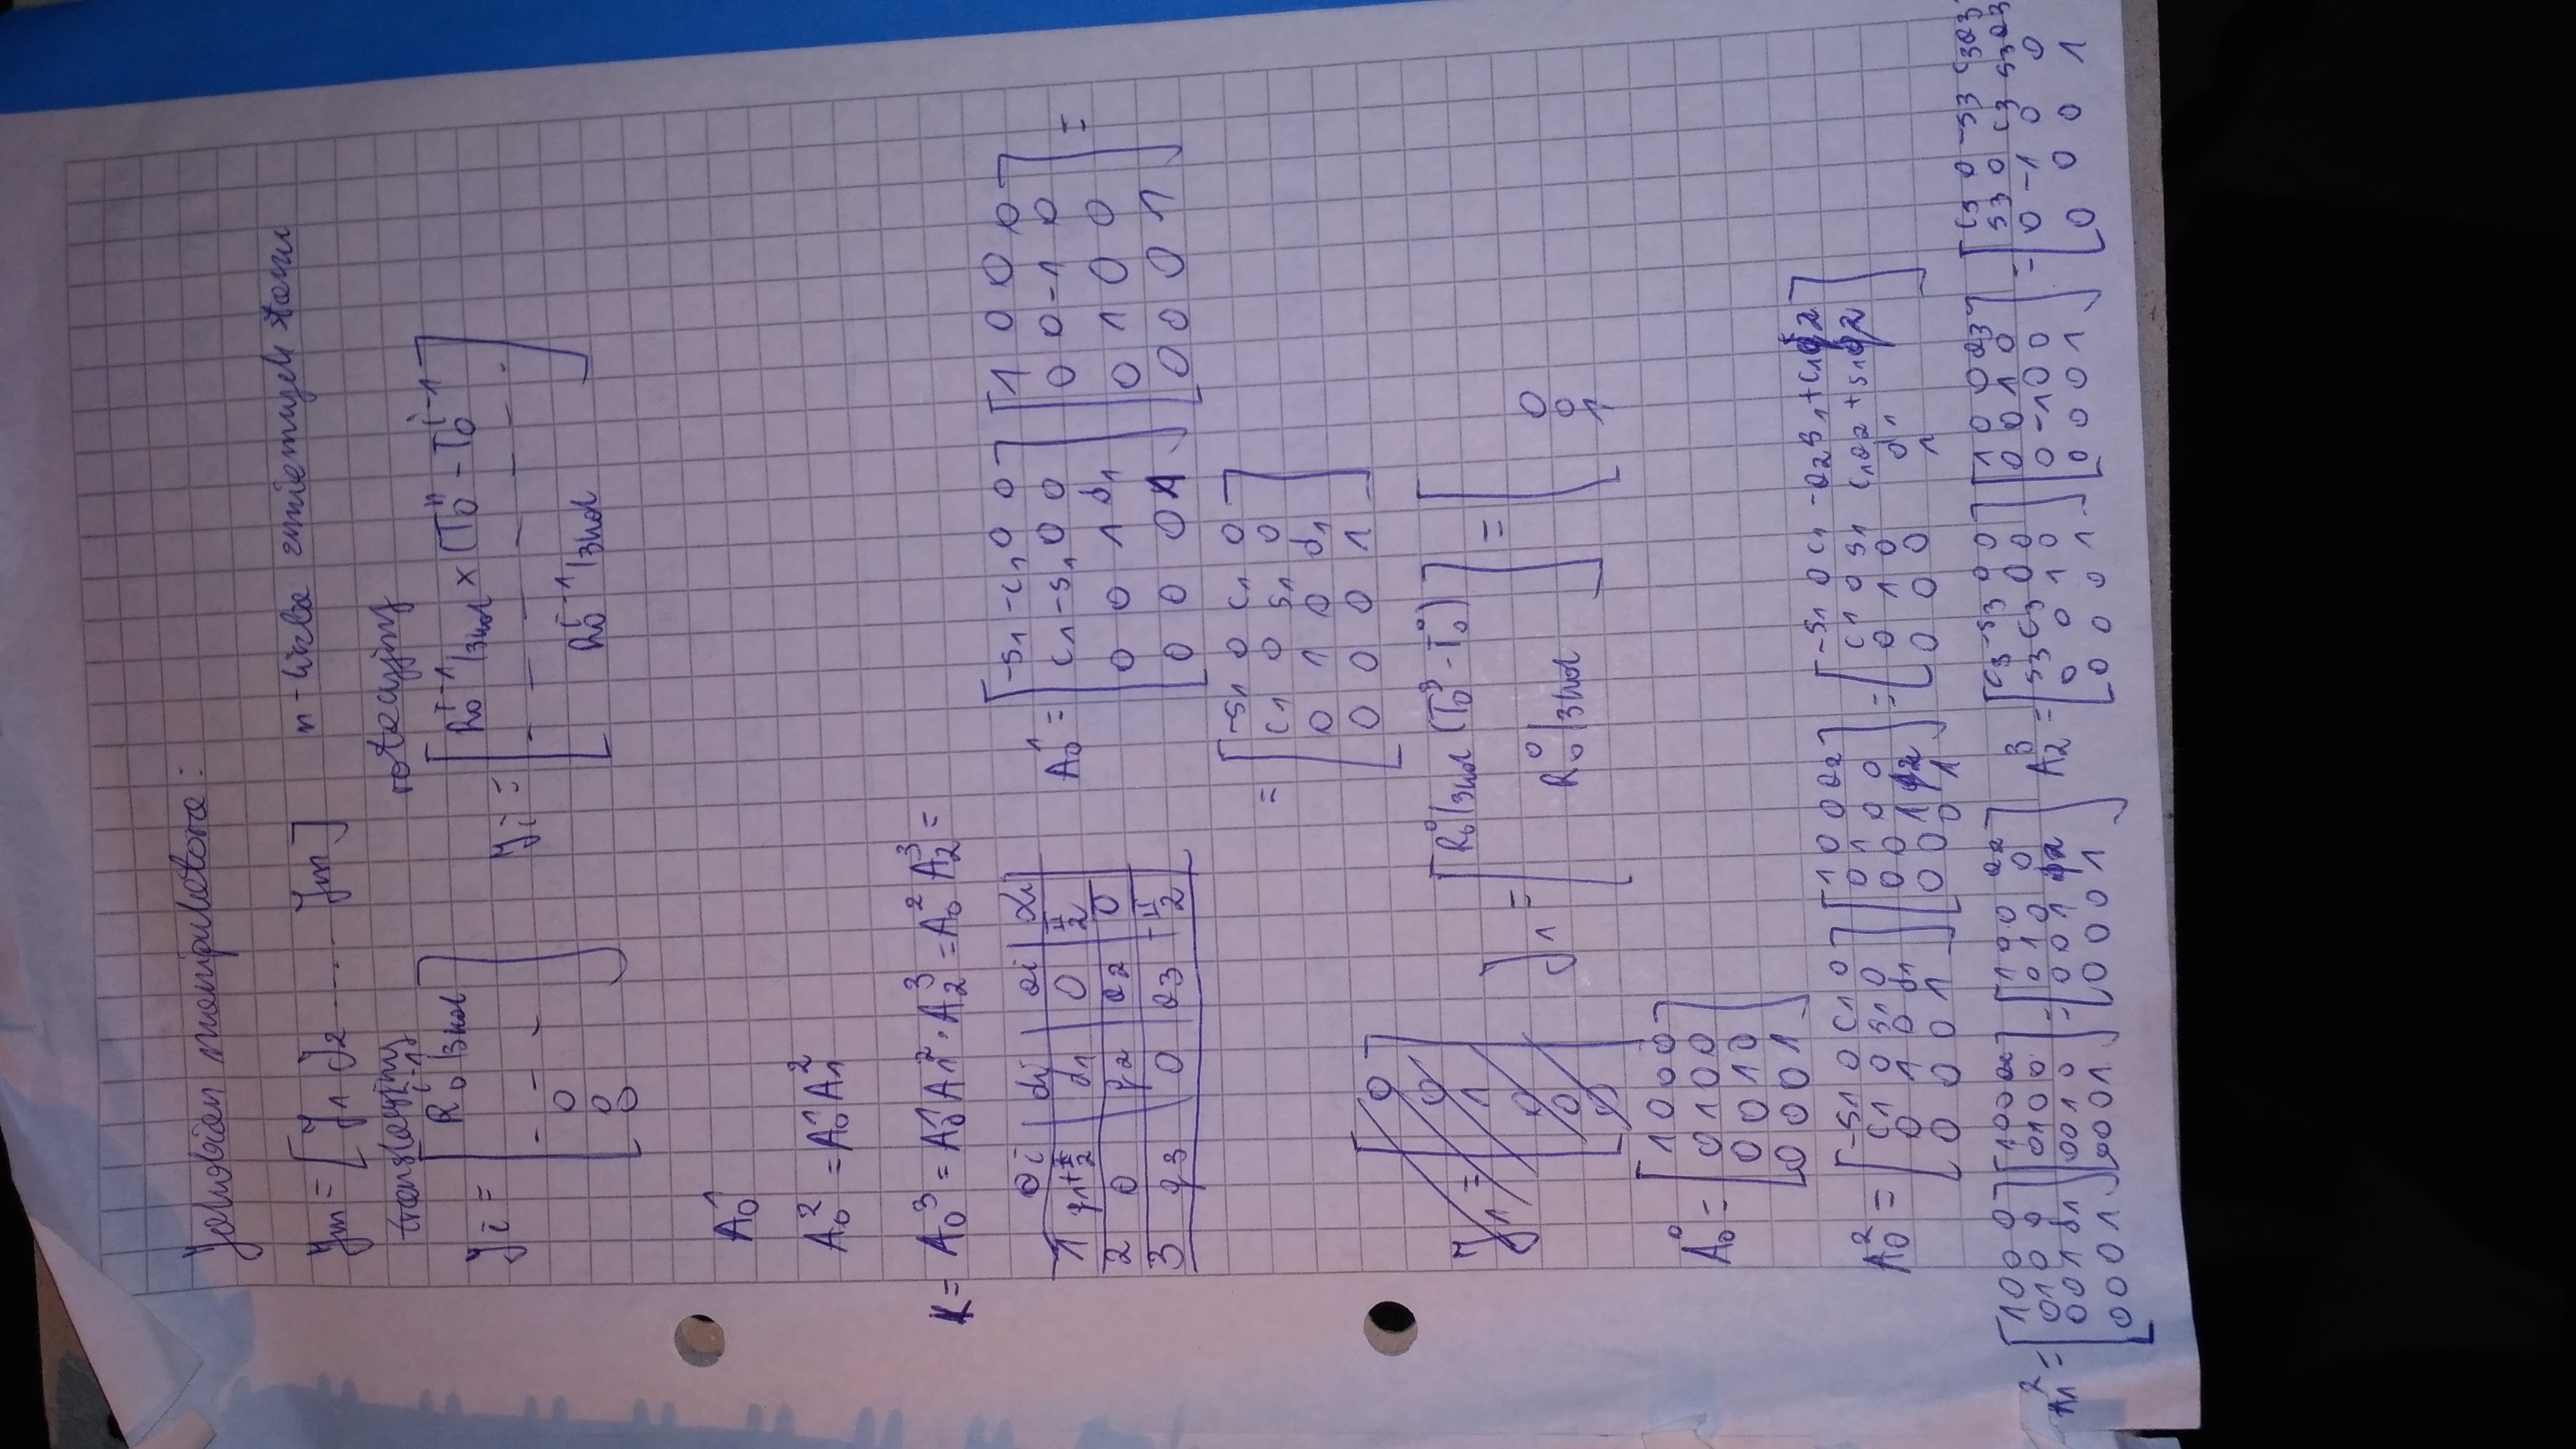 Jakobian manipulatora:
Jm = [J1 J2 ..... Jm] n - liczba zmiennych stanu
translacyjny rotacyjny
Ji = [R0^i-1 |3kol - - - 0 0 0] Ji = [R0^i-1 |3kol × (T0^n - T0^i-1) - - - - - R0^i-1 |3kol]
A0^1
A0^2 = A0^1 A1^2
K = A0^3 = A0^1 A1^2 · A2^3 = A0^2 A2^3 =
θi | di | ai | αi
1 q1+π/2 | d1 | 0 | π/2
2 0 | q2 | a2 | 0
3 q3 | 0 | a3 | -π/2
A0^1 = [-s1 -c1 0 0
c1 -s1 0 0
0 0 1 d1
0 0 0 1] [1 0 0 0
0 0 -1 0
0 1 0 0
0 0 0 1] =
= [-s1 0 c1 0
c1 0 s1 0
0 1 0 d1
0 0 0 1]
J1 = [0 0 1 0 0 0]
J1 = [R0^0 |3kol (T0^3 - T0^0)
R0^0 |3kol] = [
0
0
1
A0^0 = [1 0 0 0
0 1 0 0
0 0 1 0
0 0 0 1]
A0^2 = [-s1 0 c1 0
c1 0 s1 0
0 1 0 d1
0 0 0 1] [1 0 0 a2
0 1 0 0
0 0 1 q2
0 0 0 1] = [-s1 0 c1 -a2s1+c1q2
c1 0 s1 c1a2+s1q2
0 1 0 d1
0 0 0 1]
A1^2 = [1 0 0 0
0 1 0 0
0 0 1 d1
0 0 0 1] [1 0 0 a2
0 1 0 0
0 0 1 0
0 0 0 1] = [1 0 0 a2
0 1 0 0
0 0 1 q2
0 0 0 1]
A2^3 = [c3 -s3 0 0
s3 c3 0 0
0 0 1 0
0 0 0 1] [1 0 0 a3
0 0 1 0
0 -1 0 0
0 0 0 1] = [c3 0 -s3 c3a3
s3 0 c3 s3a3
0 -1 0 0
0 0 0 1